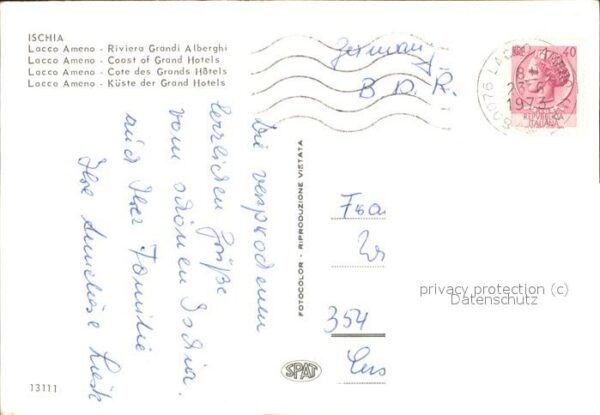 ISCHIA
Lacco Ameno - Riviera Grandi Alberghi
Lacco Ameno - Coast of Grand Hotels
Lacco Ameno - Cote des Grands Hôtels
Lacco Ameno - Küste der Grand Hotels
Germany
B D.R.
40
80076 LACCO
23
1973
REPVBBLICA
ITALIANA
Die versprochenen
herzlichen Grüße
vom schönen Ischia.
auch Ihrer Familie
Ihre
FOTOCOLOR - RIPRODUZIONE VIETATA
Frau
354
privacy protection (c)
Datenschutz
SPAT
13111